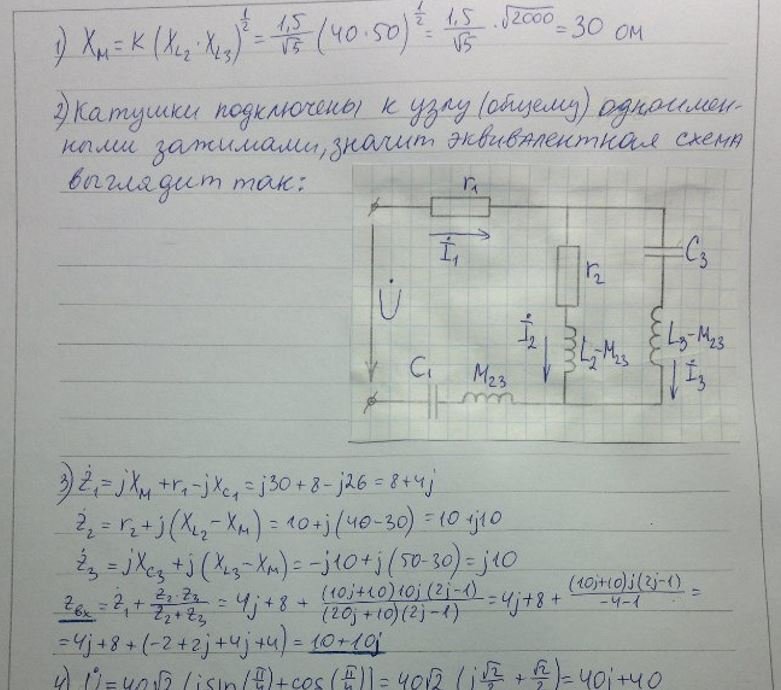 1) X_M = K (X_L2 · X_L3)^(1/2) = 1,5/√5 (40·50)^(1/2) = 1,5/√5 · √2000 = 30 ом
2) Катушки подключены к узлу (общему) одноимен-
ными зажимами, значит эквивалентная схема
выглядит так:
r₁
İ₁
C₃
r₂
U̇
İ₂
L₂-M₂₃
L₃-M₂₃
İ₃
C₁
M₂₃
3) Ż₁ = jX_M + r₁ - jX_C1 = j30 + 8 - j26 = 8 + 4j
Ż₂ = r₂ + j(X_L2 - X_M) = 10 + j(40-30) = 10 + j10
Ż₃ = jX_C3 + j(X_L3 - X_M) = -j10 + j(50-30) = j10
Z_вх = Ż₁ + (Z₂·Z₃)/(Z₂+Z₃) = 4j + 8 + ((10j+10)10j(2j-1))/((20j+10)(2j-1)) = 4j + 8 + ((10j+10)j(2j-1))/(-4-1) =
= 4j + 8 + (-2 + 2j + 4j + 4) = 10 + 10j
4) U̇ = 40√2 (j sin(π/4) + cos(π/4)) = 40√2 (j √2/2 + √2/2) = 40j + 40